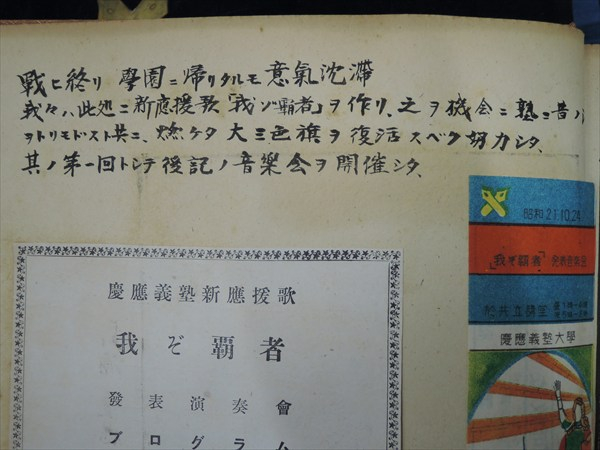 戰ヒ終リ 學園ニ帰リタルモ意氣沈滞
我々ハ此処ニ新應援歌「我ゾ覇者」ヲ作リ、之ヲ機会ニ塾ニ昔ノ
ヲトリモドスト共ニ、燃ケタ大三色旗ヲ復活スベク努力シタ、
其ノ第一回トシテ後記ノ音樂会ヲ開催シタ、
慶應義塾新應援歌
我ぞ覇者
發表演奏會
プログラム
昭和21.10.24
「我ぞ覇者」発表音楽会
慶應義塾大學